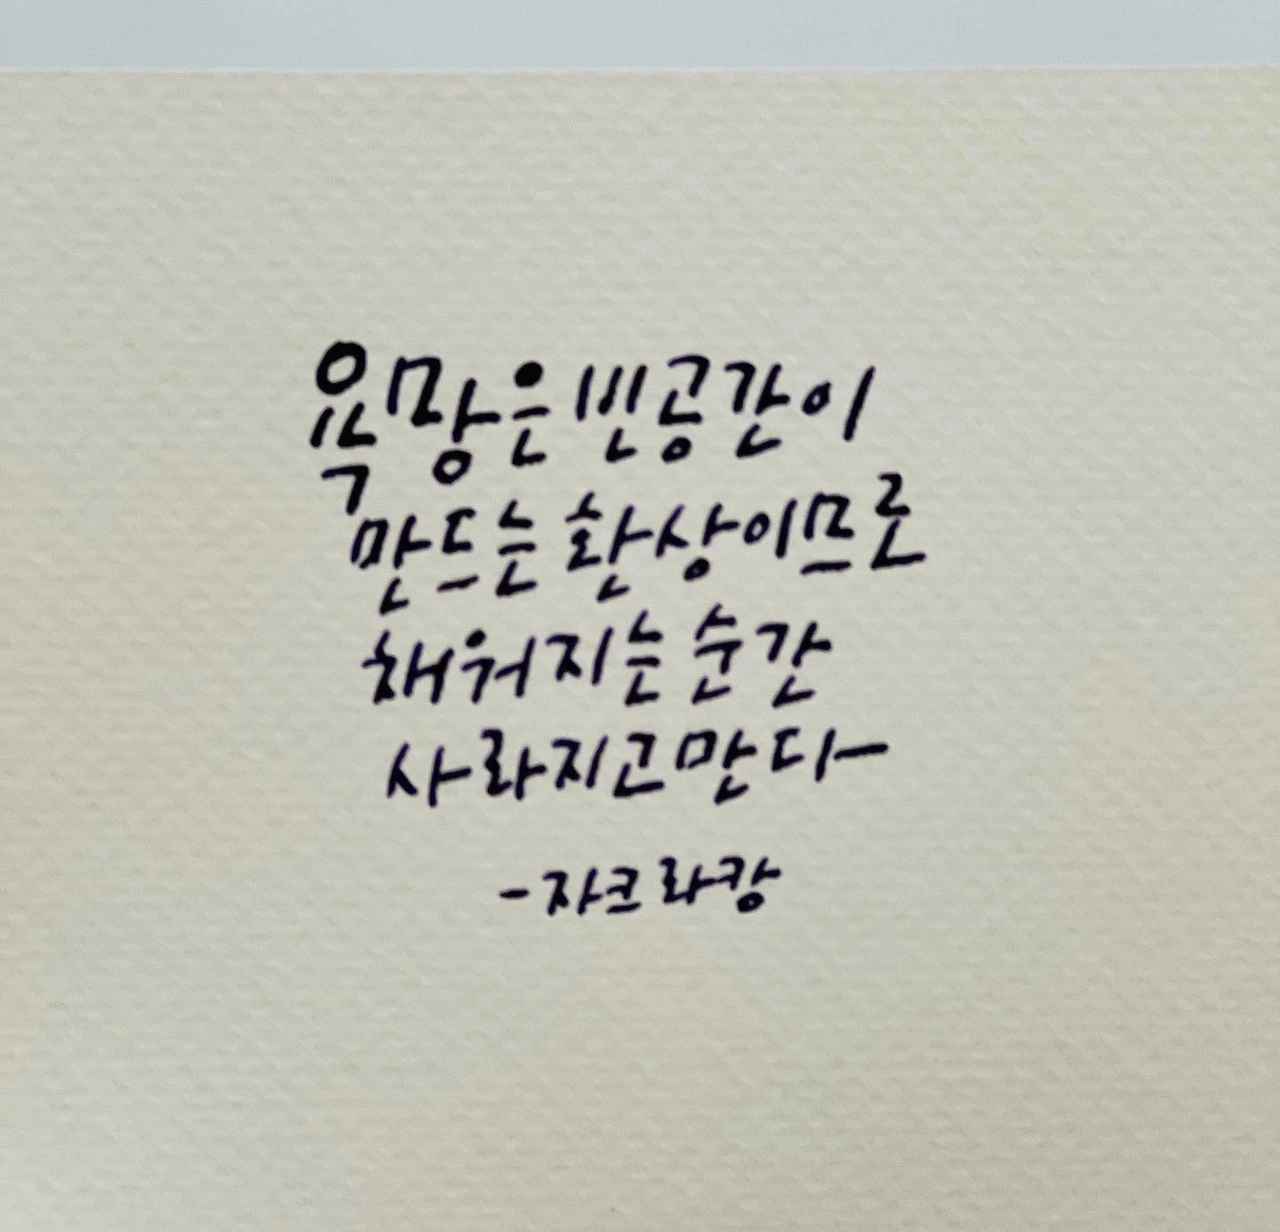 욕망은 빈 공간이
만드는 환상이므로
채워지는 순간
사라지고 만다
- 자크 라캉